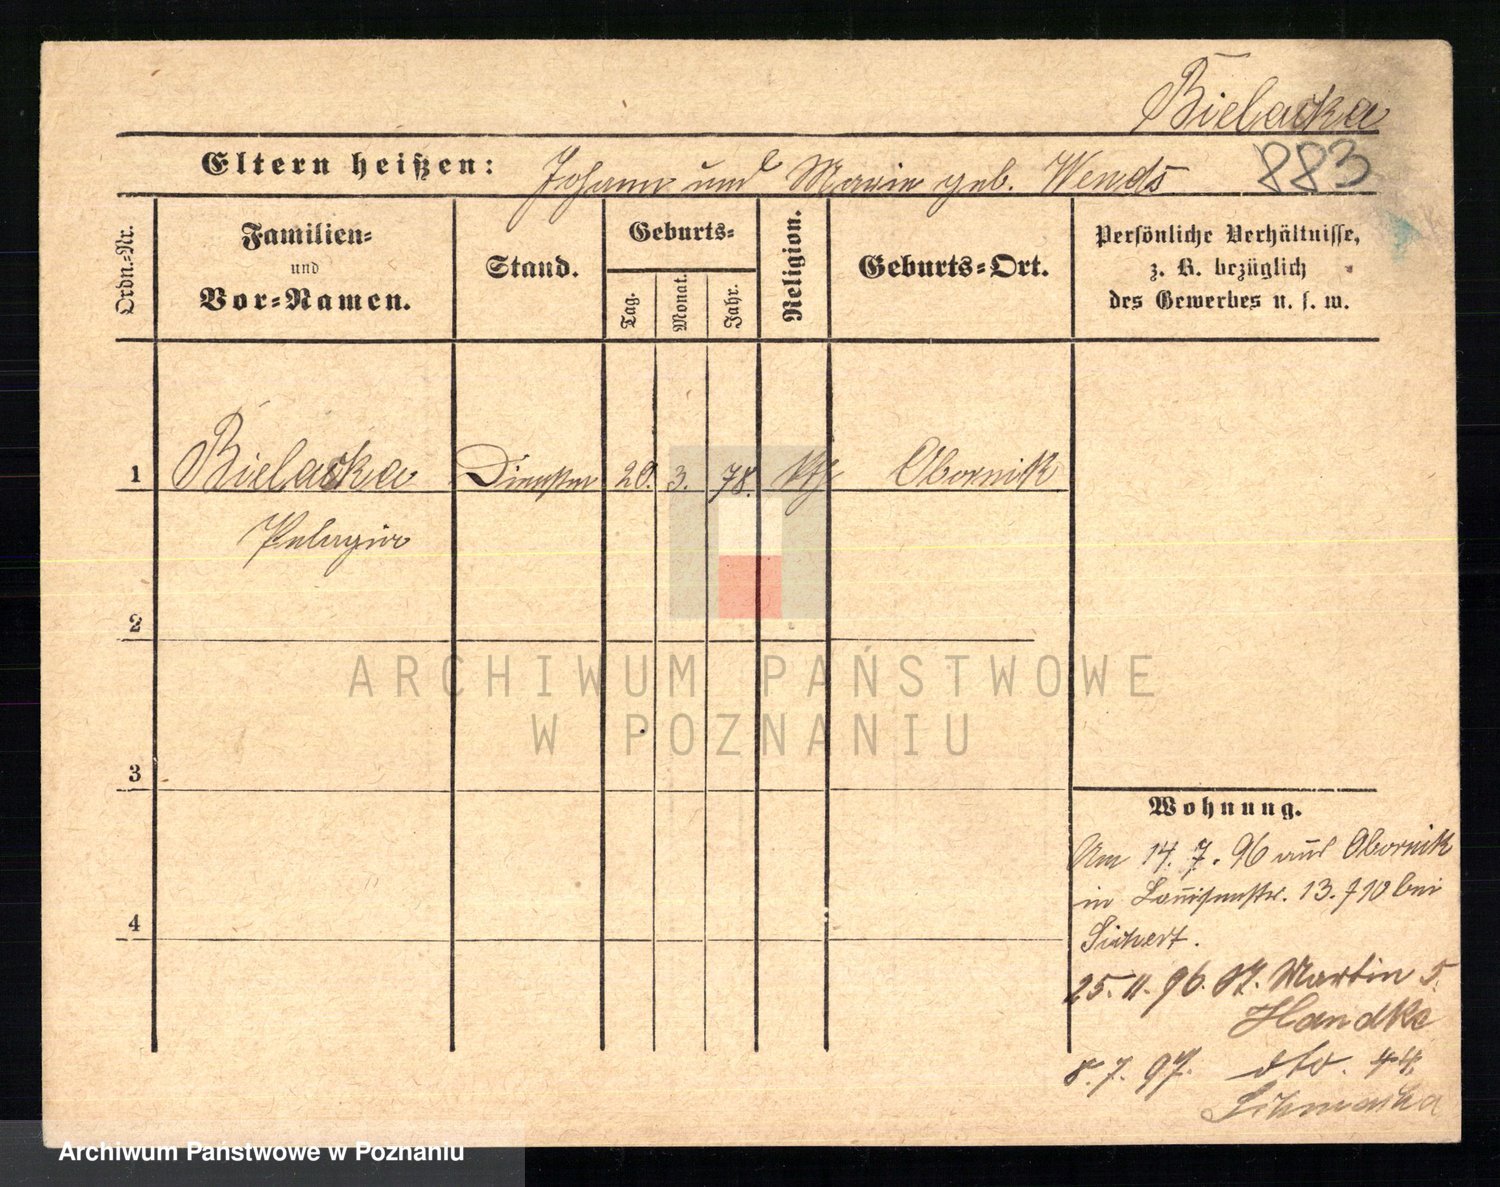 Bielacka
Eltern heißen: Johann und Marie geb. Wends
883
Ordn.-Nr.
Familien-
und
Vor-Namen.
Stand.
Geburts-
Tag.
Monat.
Jahr.
Religion.
Geburts-Ort.
Persönliche Verhältnisse,
z. B. bezüglich
des Gewerbes u. s. w.
1 Bielacka 20. 3. 78. kth Obornik
Pelagia
2
ARCHIWUM PAŃSTWOWE
W POZNANIU
3
Wohnung.
Am 14. 7. 96 aus Obornik
in Louisenstr. 13. bei
4
25. 11. 96. St. Martin 5.
Handke
8. 7. 97. dto. 44
Archiwum Państwowe w Poznaniu